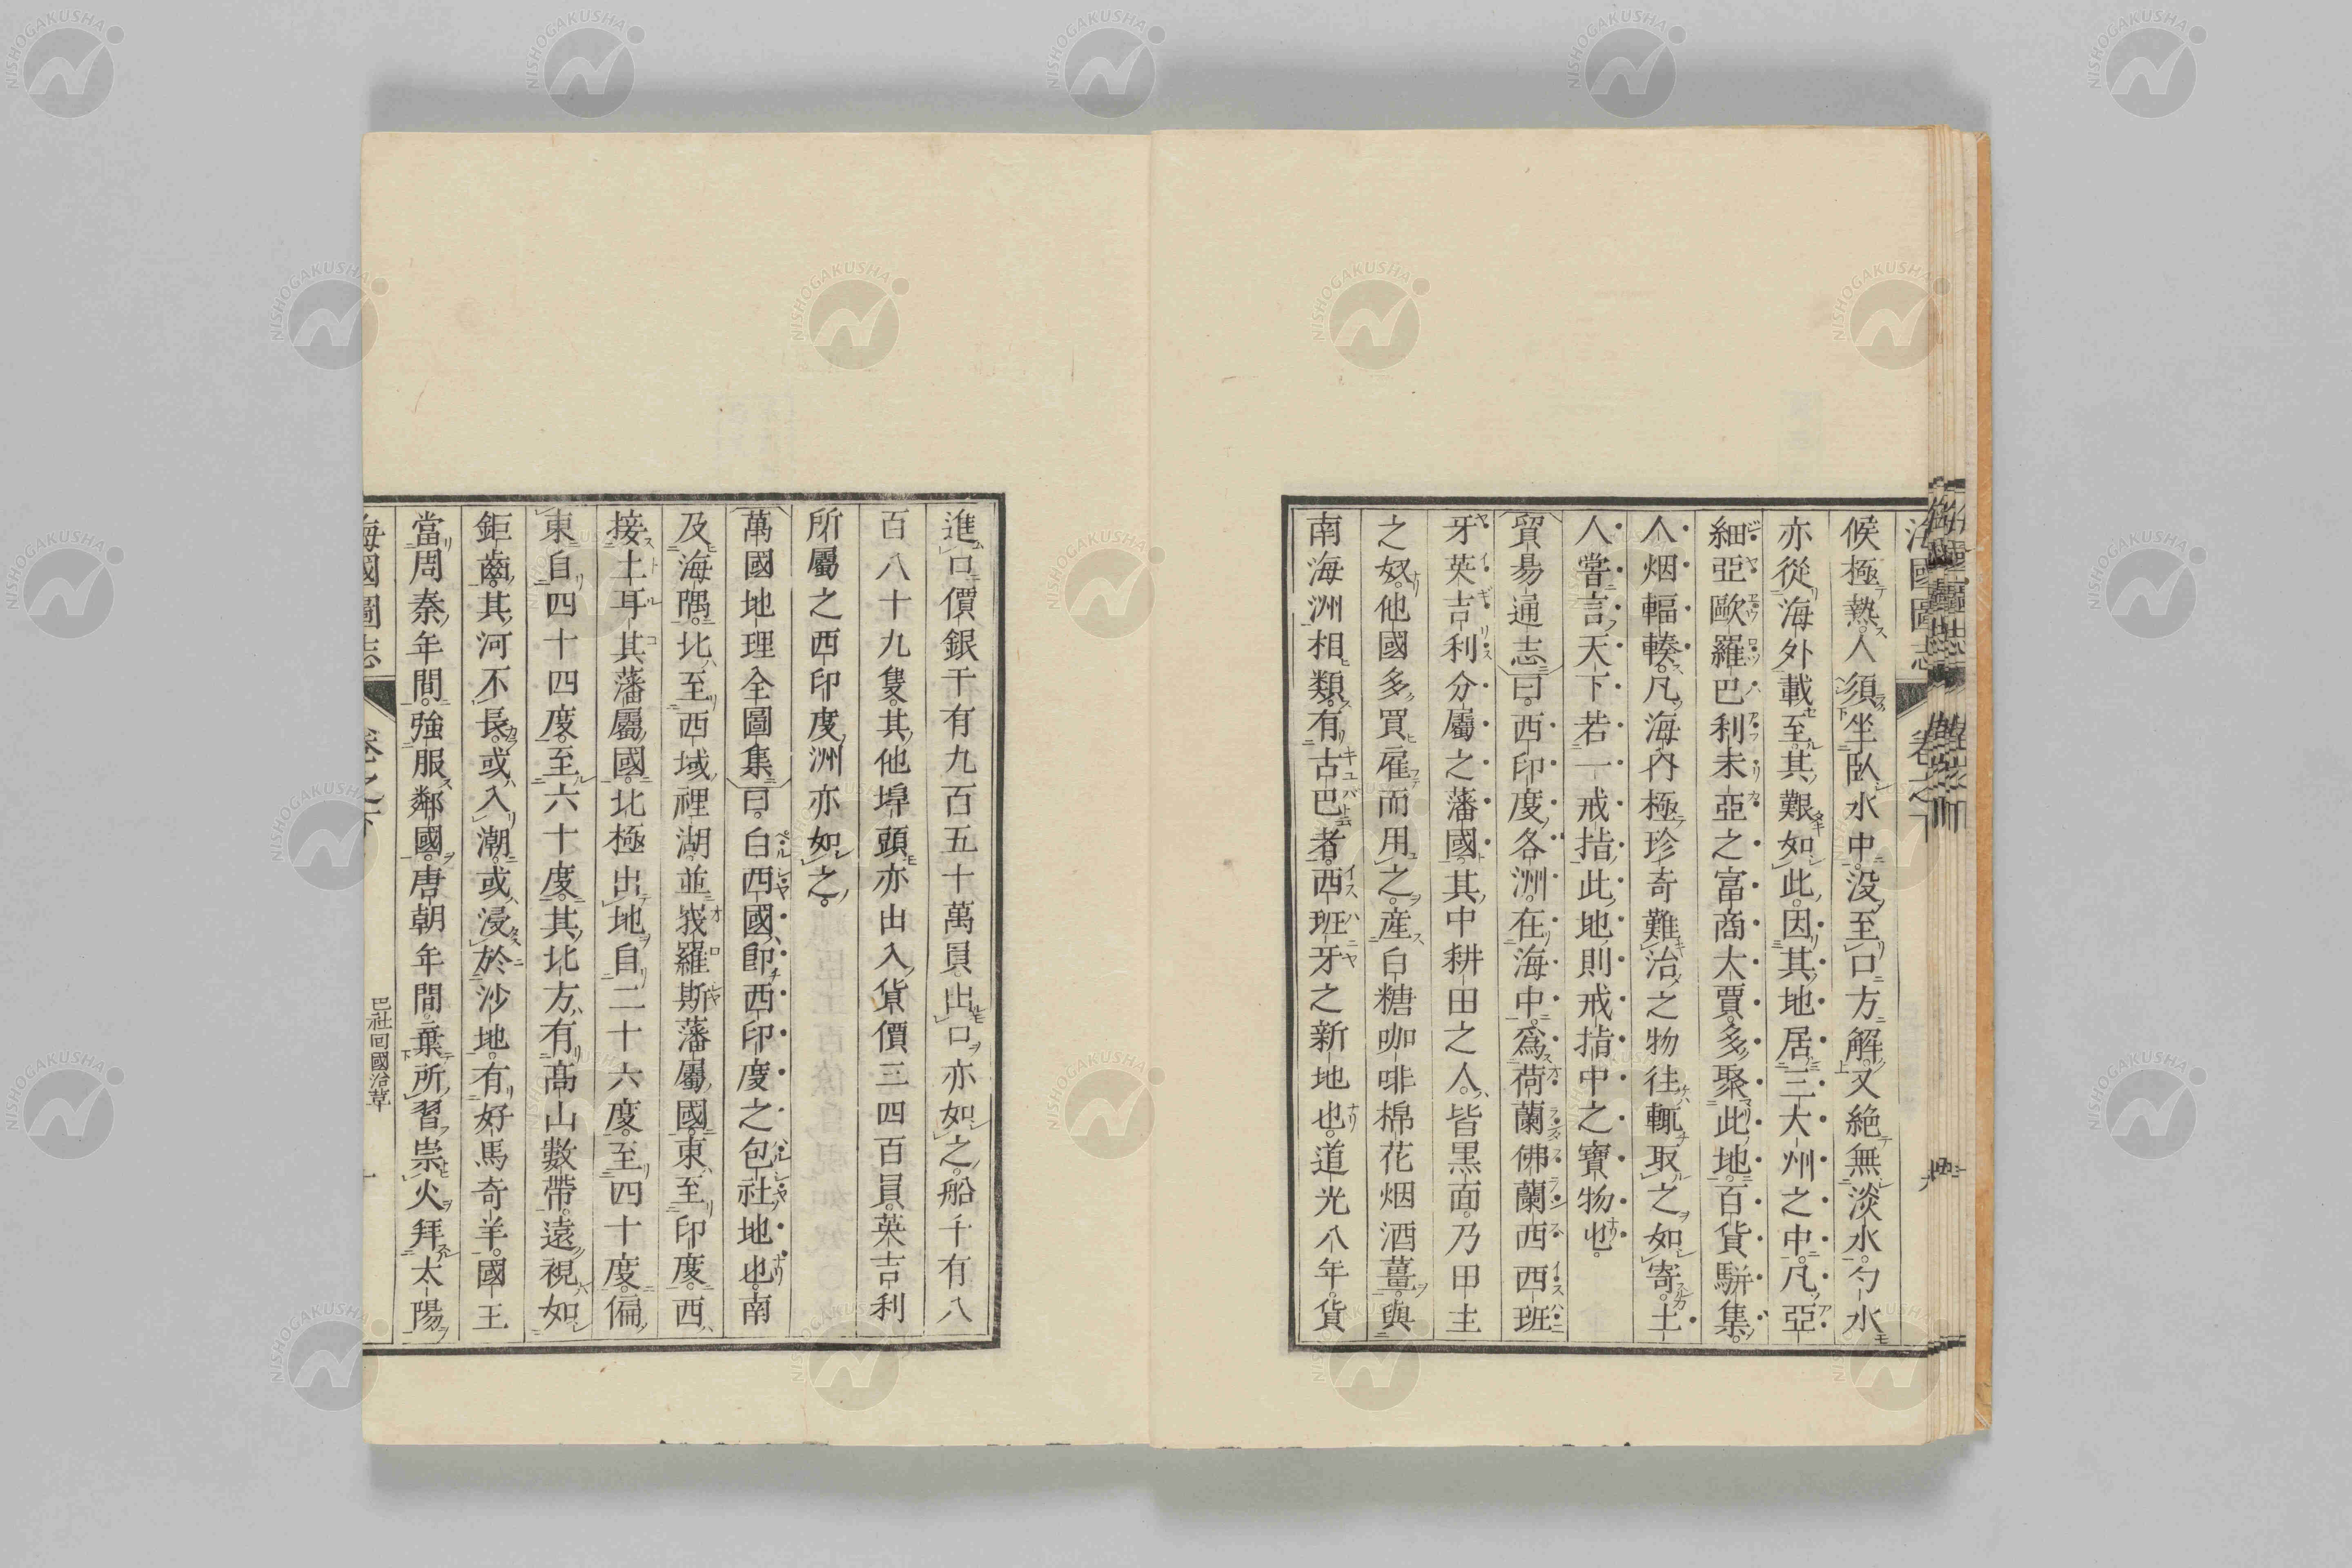 候極熱。人須坐臥水中。没至口方解。又絶無淡水。勺水
亦從海外載至。其艱如此。因其地居三大州之中。凡亞
細亞歐羅巴利未亞之富商大賈。多聚此地。百貨駢集。
人烟輻輳。凡海內極珍奇難治之物往輒取之如寄。土
人嘗言。天下若一戒指。此地則戒指中之寶物也。
貿易通志曰。西印度各洲。在海中。爲荷蘭佛蘭西西班
牙英吉利分屬之藩國。其中耕田之人。皆黒面。乃甲主
之奴。他國多買雇而用之。産白糖咖啡棉花烟酒薑。與
南海洲相類。有古巴者。西班牙之新地也。道光八年。貨
進口價銀千有九百五十萬員。出口亦如之。船千有八
百八十九隻。其他埠頭亦出入貨價三四百員。英吉利
所屬之西印度洲亦如之。
萬國地理全圖集曰。白西國。卽西印度之包社地也。南
及海隅。北至西域裡湖。並我羅斯藩屬國。東至印度。西
接土耳其藩屬國。北極出地自二十六度。至四十度。偏
東自四十四度。至六十度。其北方有高山數帶。遠視如
鉅齒。其河不長。或入潮。或浸於沙地。有好馬奇羊。國王
當周秦年間。強服鄰國。唐朝年間。棄所習崇火拜太陽
海國圖志
巴社回國沿革
NISHOGAKUSHA